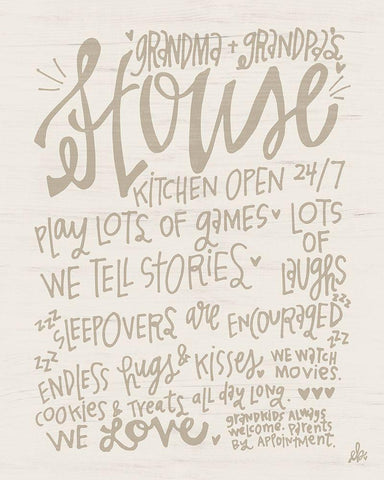 GRANDMA + GRANDPA'S
House
KITCHEN OPEN 24/7
PLAY LOTS OF GAMES
LOTS OF LAUGHS
WE TELL STORIES
zzz SLEEPOVERS are ENCOURAGED zzz
zzz zzz
ENDLESS hugs & KISSES
WE WATCH
MOVIES.
COOKIES & TREATS all day long.
WE LOVE
GRANDKIDS ALWAYS
WELCOME. PARENTS
BY APPOINTMENT.